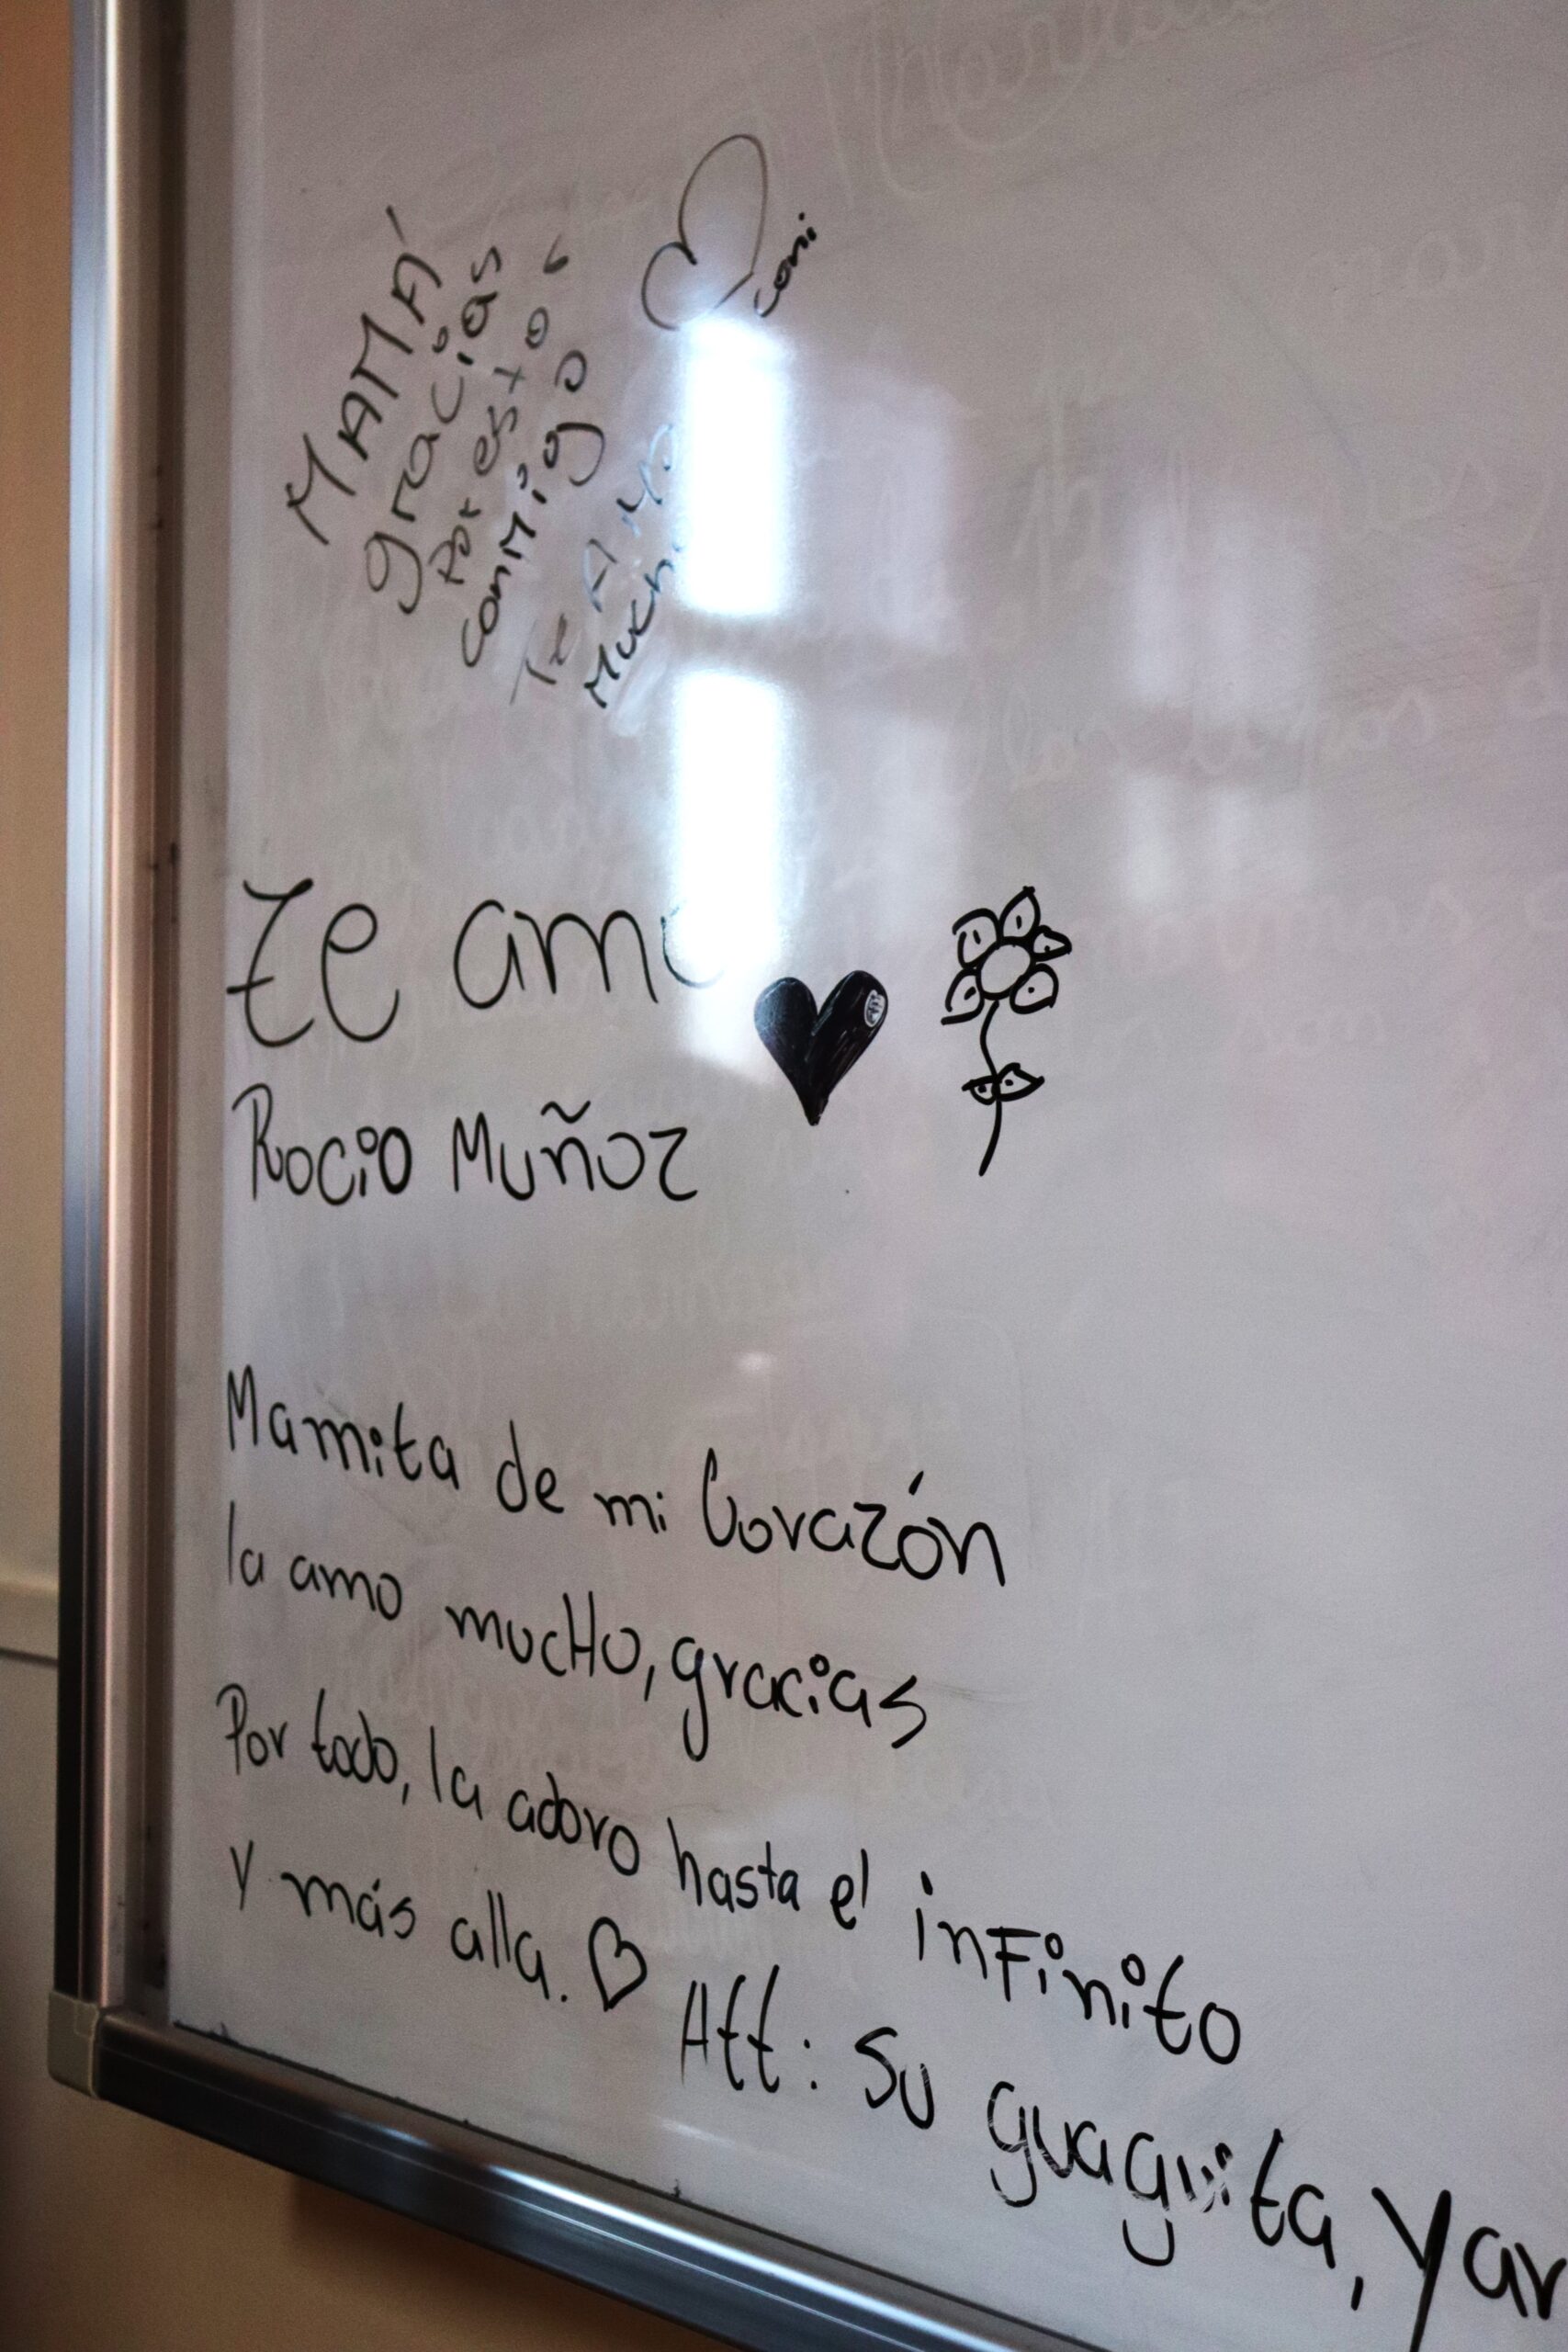 MAMÁ
gracias
Por estar
conmigo
Te AMO
Mucho
coni
te amo
Rocio Muñoz
Mamita de mi Corazón
la amo mucHo, gracias
Por todo, la adoro hasta el inFinito
Y más alla. Att: Su guaguita, Yar